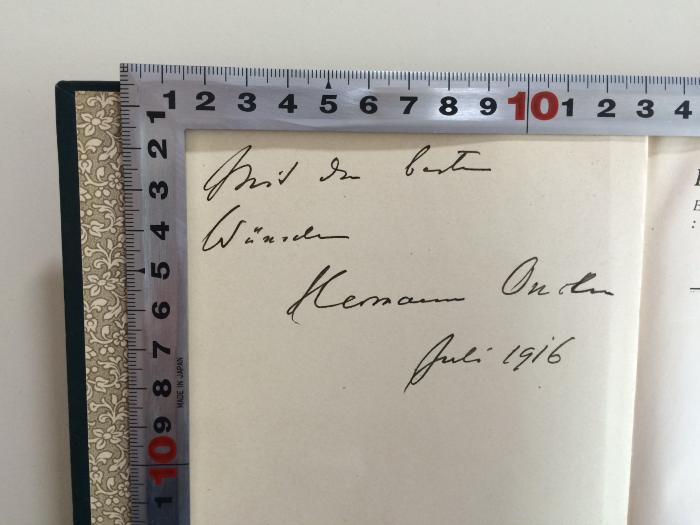 1 2 3 4 5 6 7 8 9 10 1 2 3 4
1 2 3 4 5 6 7 8 9 10 1
MADE IN JAPAN
Mit den besten
Wünschen
Hermann Oncken
Juli 1916